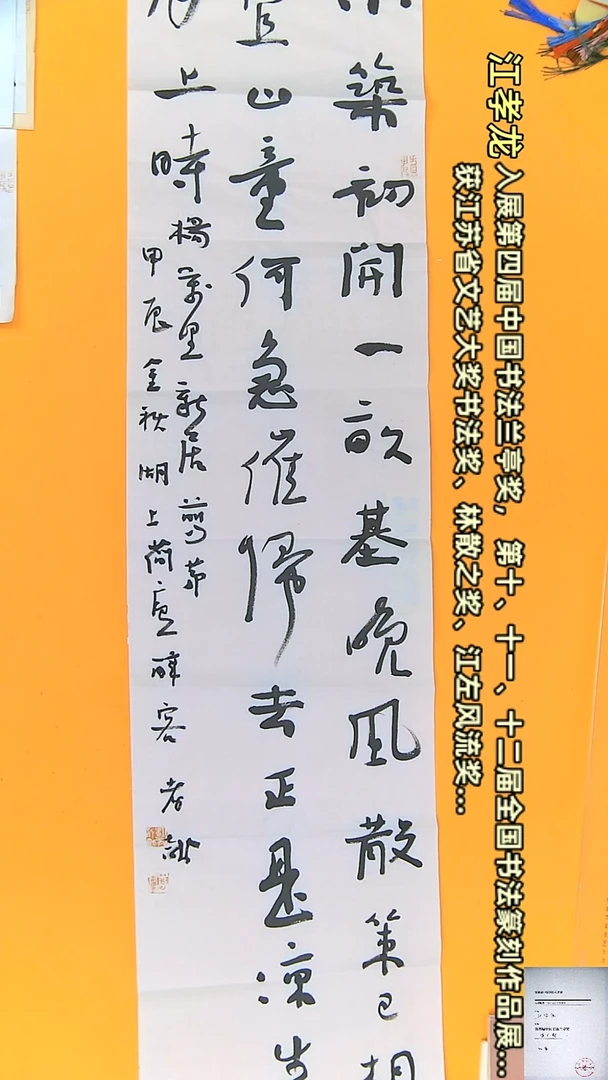 江孝龙 入展第四届中国书法兰亭奖，第十、十一、十二届全国书法篆刻作品展...
获江苏省文艺大奖书法奖、林散之奖、江左风流奖...
小築初開一畝基晚風散策已相
宜山童何急催帰去正是涼生
月上時
楊萬里新居剪茆
甲辰金秋湖上荷廬醉客 孝龍